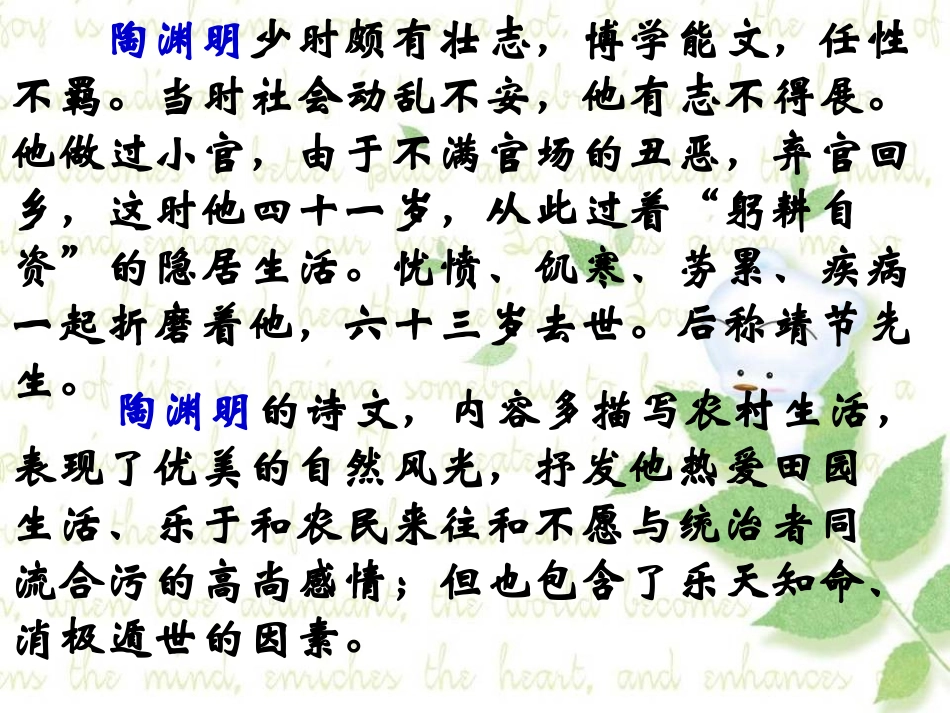 陶渊明少时颇有壮志，博学能文，任性
不羁。当时社会动乱不安，他有志不得展。
他做过小官，由于不满官场的丑恶，弃官回
乡，这时他四十一岁，从此过着“躬耕自
资”的隐居生活。忧愤、饥寒、劳累、疾病
一起折磨着他，六十三岁去世。后称靖节先
生。
陶渊明的诗文，内容多描写农村生活，
表现了优美的自然风光，抒发他热爱田园
生活、乐于和农民来往和不愿与统治者同
流合污的高尚感情；但也包含了乐天知命、
消极遁世的因素。